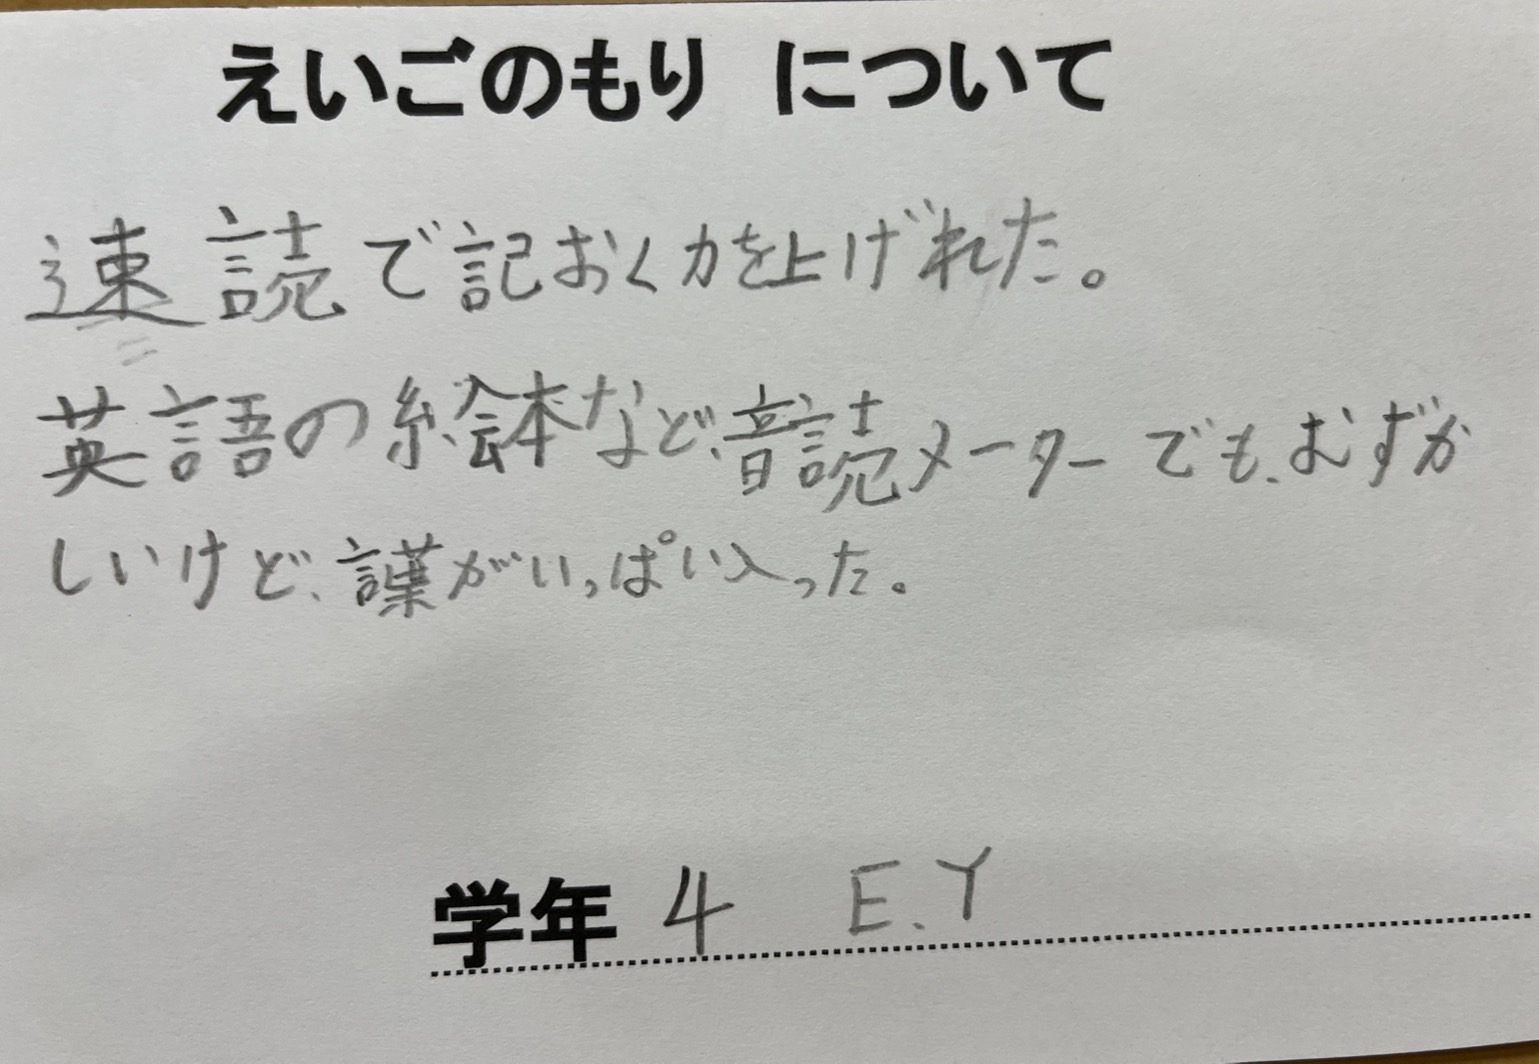 えいごのもり について
速読で記おく力を上げれた。
英語の絵本など、音読メーターでも、むずか
しいけど、葉がいっぱい入った。
学年 4 E.Y